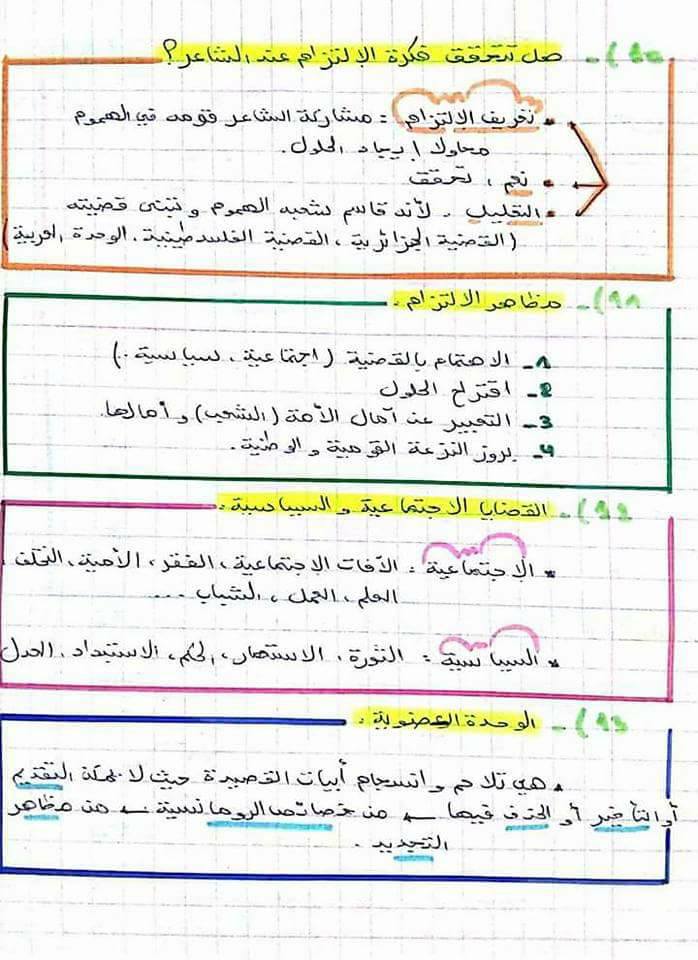 90)- هل تتحقق فكرة الالتزام عند الشاعر؟
• تعريف الالتزام : مشاركة الشاعر قومه في الهموم
محاولا إيجاد الحلول.
• نعم ، تحقق
• التعليل . لأنه قاسم شعبه الهموم و تبنى قضيته
(القضية الجزائرية ، القضية الفلسطينية، الوحدة العربية)
91)- مظاهر الالتزام .
1- الاهتمام بالقضية (اجتماعية ، سياسية .)
2- اقتراح الحلول
3- التعبير عن آمال الأمة (الشعب) و آمالها.
4- بروز النزعة القومية و الوطنية.
92)- القضايا الاجتماعية و السياسية .
* الاجتماعية : الآفات الاجتماعية ، الفقر ، الأمية ، التخلف .
العلم ، العمل ، الشباب ...
* السياسية : الثورة ، الاستعمار ، الحكم ، الاستبداد ، العدل
93)- الوحدة العضوية .
* هي تلاحم و انسجام أبيات القصيدة حيث لا يمكن التقديم
أو التأخير أو الحذف فيها ← من خصائص الرومانسية ← من مظاهر
التجديد .